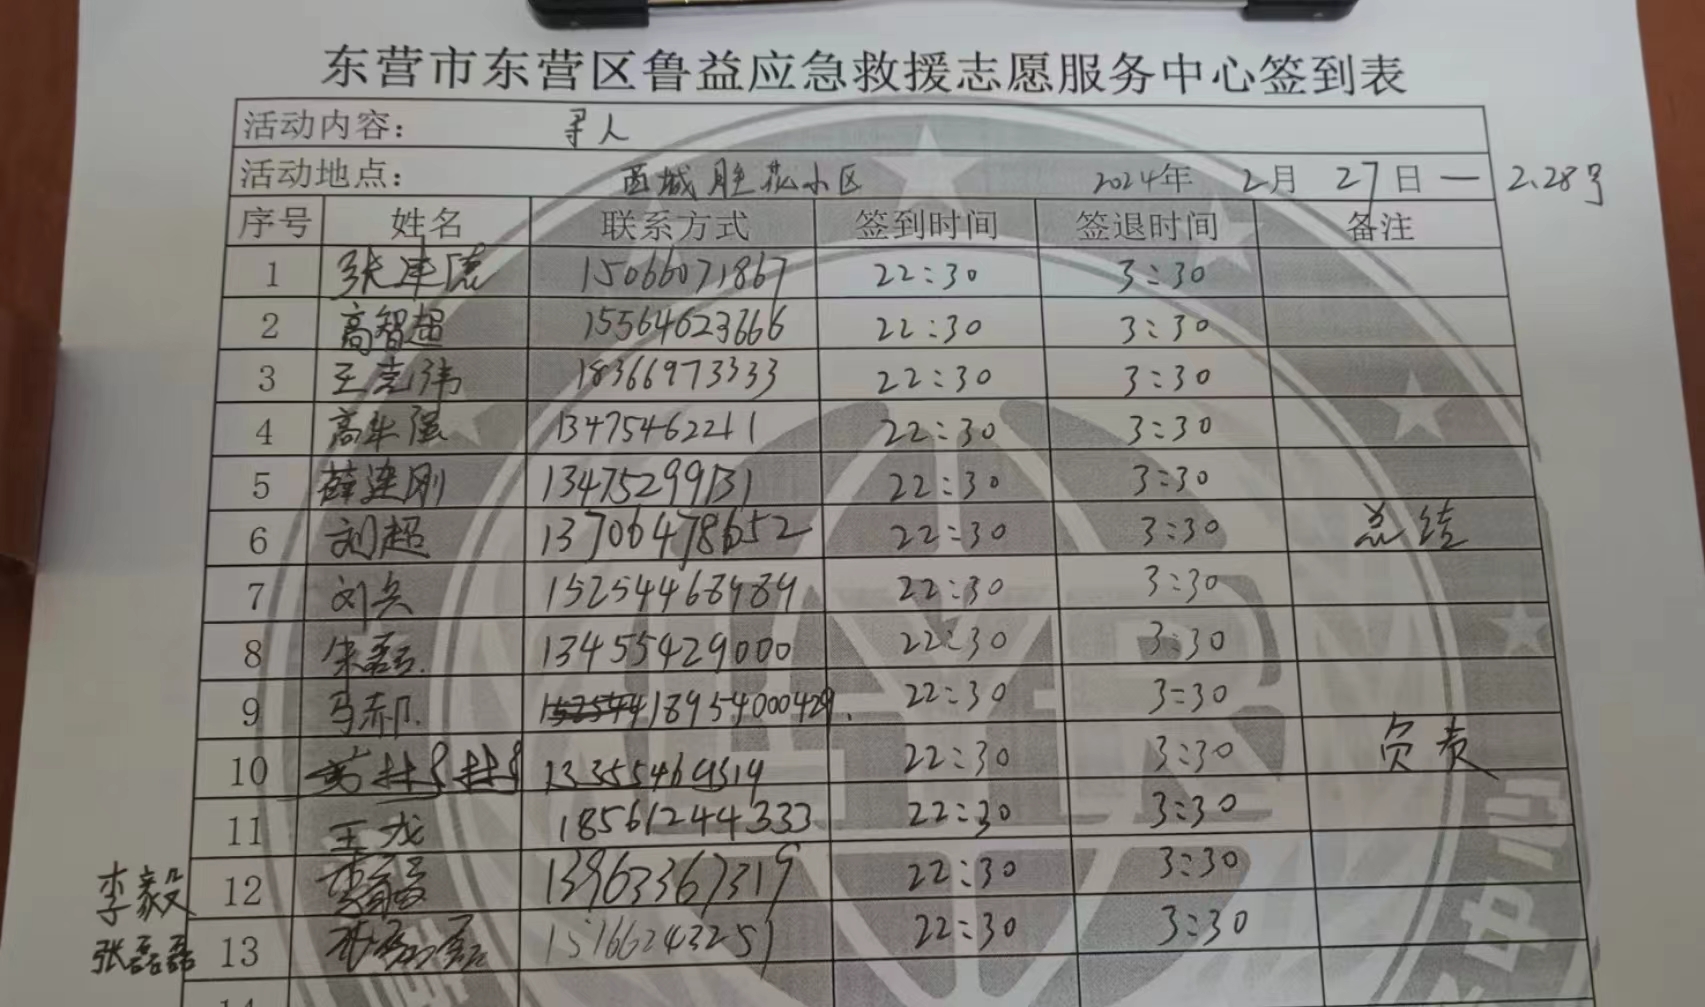 东营市东营区鲁益应急救援志愿服务中心签到表
活动内容： 寻人
活动地点： 西城胜花小区 2024年 2月 27日 — 2.28号
序号 姓名 联系方式 签到时间 签退时间 备注
1 张建德 15066071867 22:30 3:30
2 高智超 15564623666 22:30 3:30
3 王克伟 18366973333 22:30 3:30
4 高 强 13475462211 22:30 3:30
5 薛建刚 13475299131 22:30 3:30
6 刘超 13706478652 22:30 3:30 总结
7 刘兵 15254468989 22:30 3:30
8 朱磊. 13455429000 22:30 3:30
9 马郝. 18954000429. 22:30 3:30
10 22:30 3:30
11 王龙 18561244333 22:30 3:30
李毅 12 13963367319 22:30 3:30
张磊磊 13 15166243251 22:30 3:30